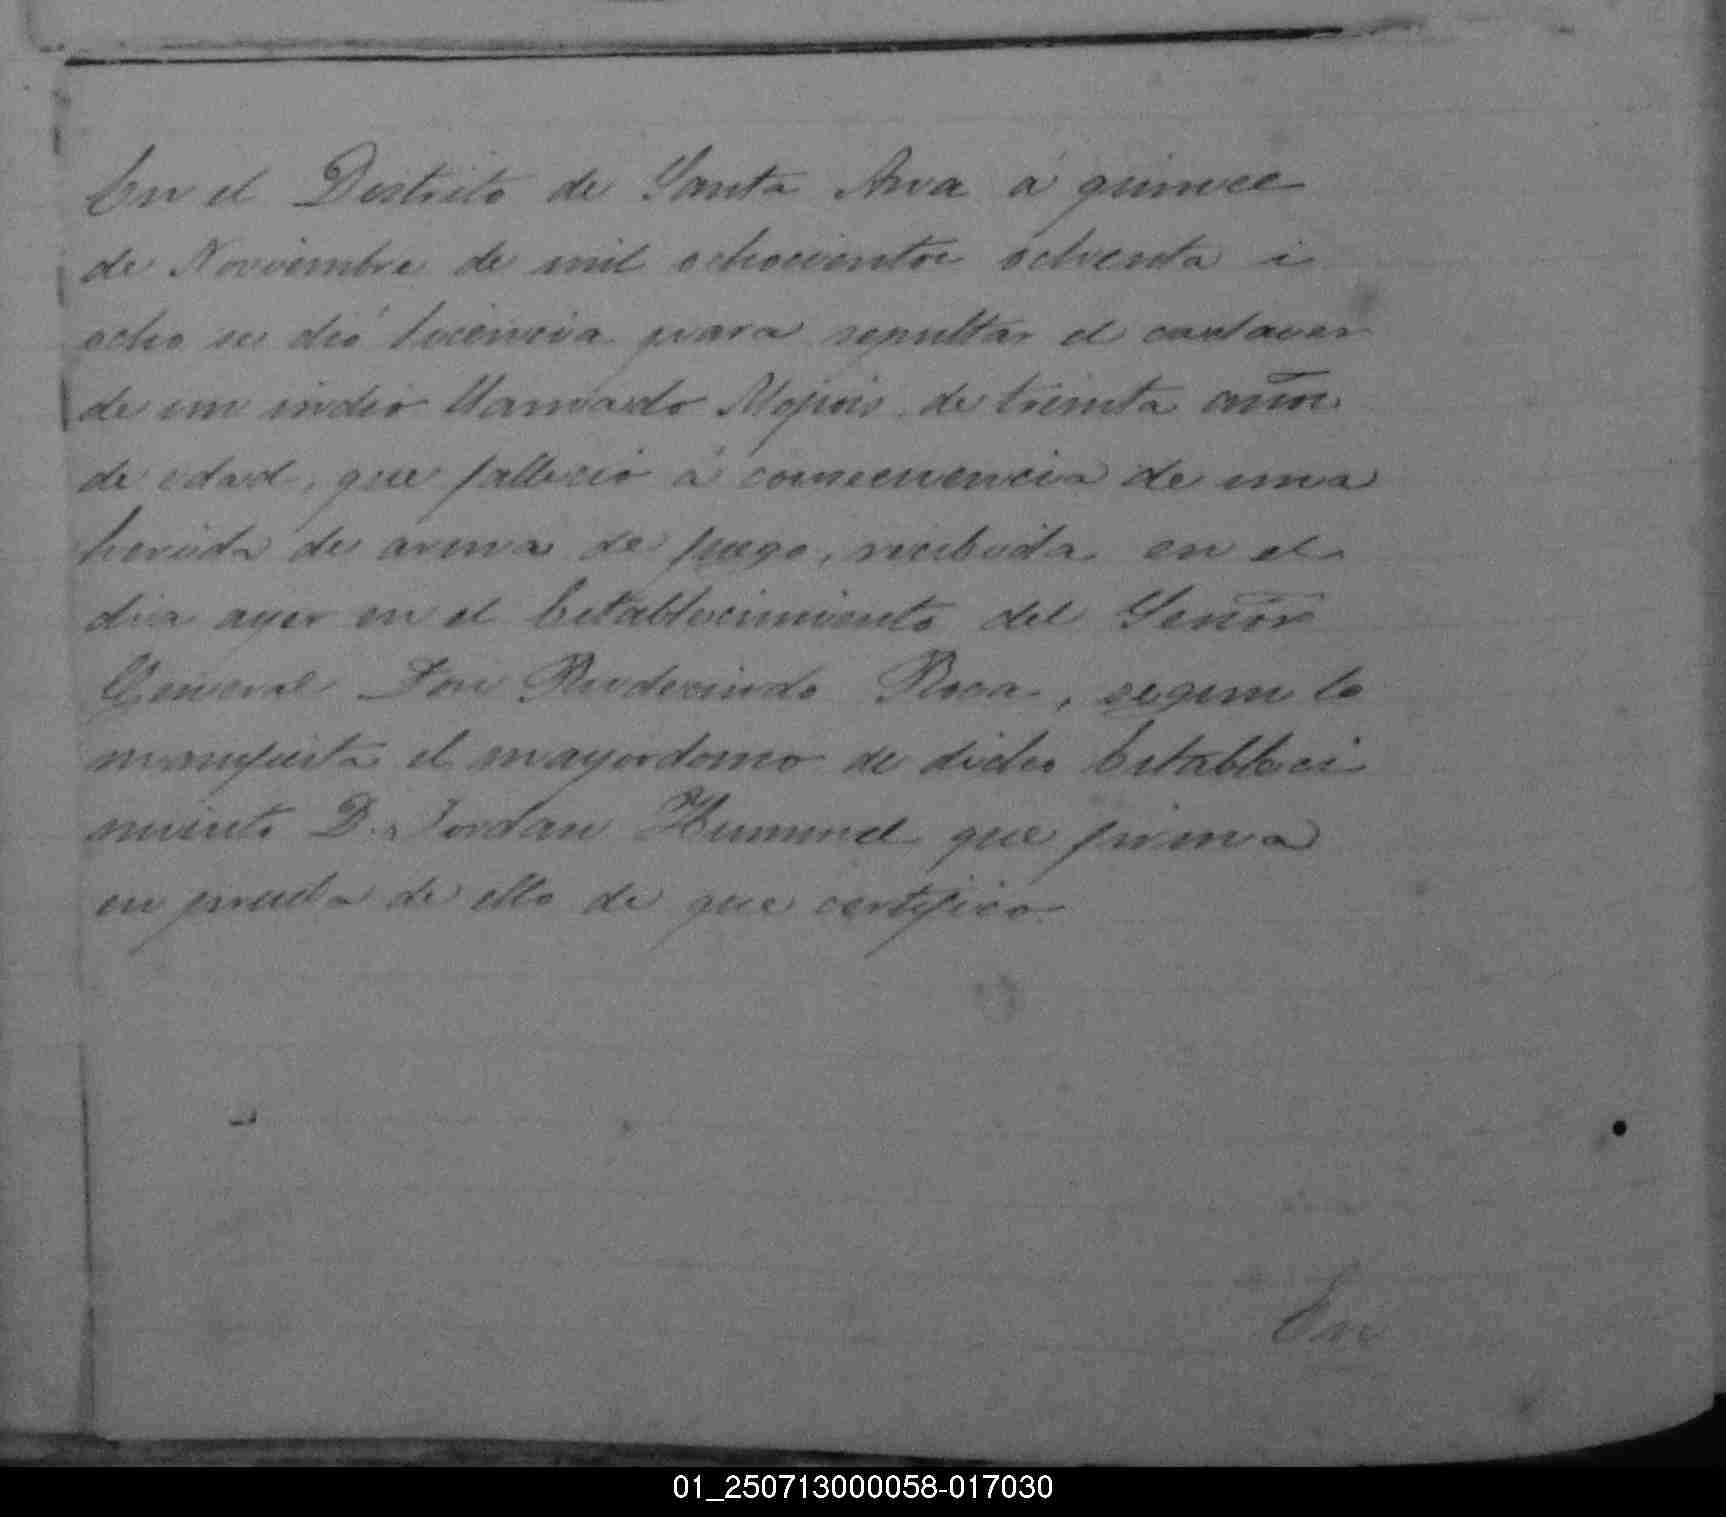 En el Distrito de Santa Ana á quince
de Noviembre de mil ochocientos ochenta i
ocho se dió licencia para sepultar el cadaver
de un indio llamado de treinta años
de edad, que falleció á consecuencia de una
herida de arma de fuego, recibida en el
dia ayer en el Establecimiento del Señor
General Don Rudecindo Roca, segun lo
manifiesta el mayordomo de dicho Estableci
miento D. Jordan Hummel que firma
en prueba de ello de que certifico
01_250713000058-017030